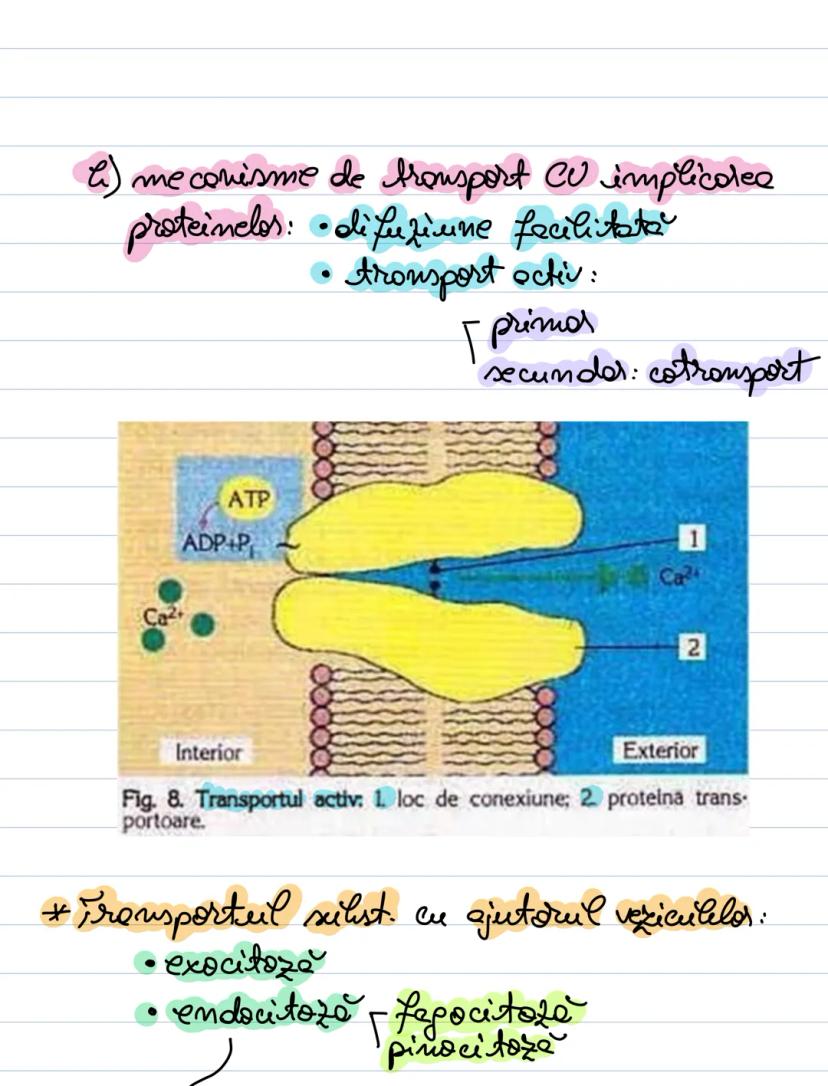 b) mecanisme de transport CU implicarea
proteinelor: • difuziune facilitată
• transport activ:
primar
secundar: cotransport
ATP
ADP+Pi
1
Ca²⁺
Ca²⁺
2
Interior
Exterior
Fig. 8. Transportul activ: 1. loc de conexiune; 2. proteină trans-
portoare.
* Transportul subst. cu ajutorul veziculelor:
• exocitoză
• endocitoză fagocitoză
pinocitoză